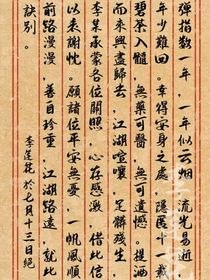 彈指數一年，一年似云烟，流光易逝
年少難回。幸得安身之處，隱匿十一載
碧茶入髓，無藥可醫。提酒
而來興盡歸去，江湖喧嚷，足慰殘生
李某承蒙各位關照，心存感激，借此信
以表謝忱。願諸位平安無憂，一帆風順
前路漫漫，善自珍重，江湖路遠，就此
訣別。
李蓮花於七月十三日絕